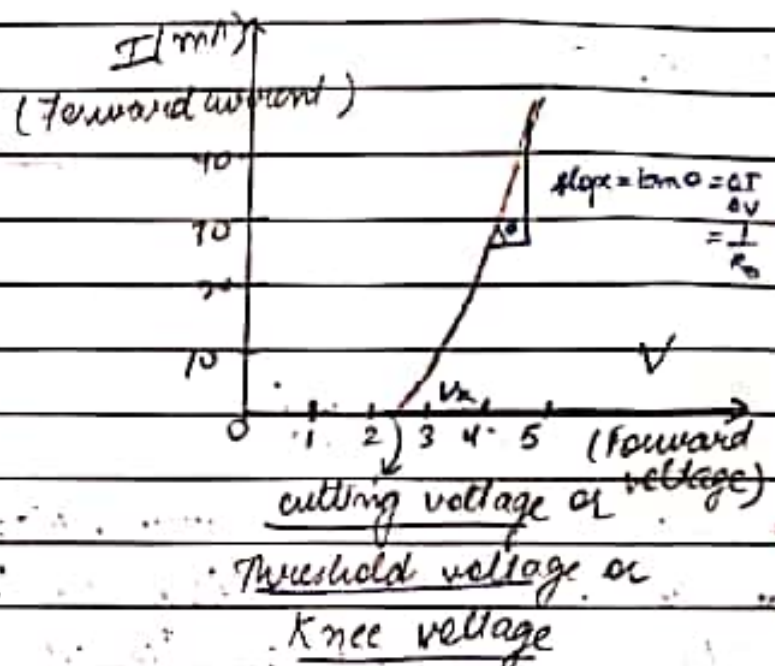 I(mA)
(Forward current)
slope = tanθ = ΔI
ΔV
= 1
R
40
30
20
10
V
Vk
0 1 2 3 4 5
(Forward
voltage)
cutting voltage or
Threshold voltage or
Knee voltage